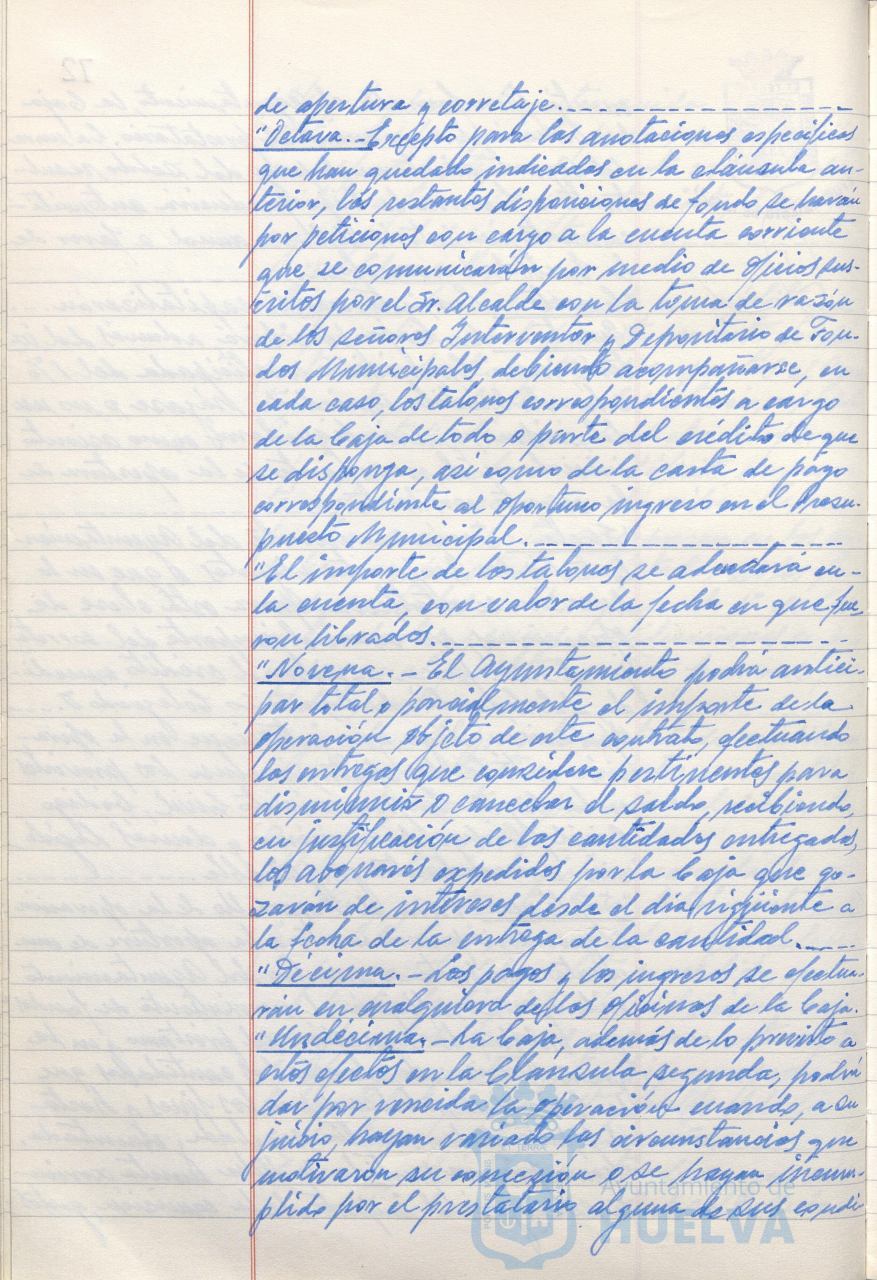 de apertura y corretaje.
"Octava.- Excepto para las anotaciones específicas
que han quedado indicadas en la cláusula an-
terior, las restantes disposiciones de fondo se harán
por peticiones con cargo a la cuenta corriente
que se comunicarán por medio de oficios sus-
critos por el Sr. Alcalde con la toma de razón
de los señores Interventor y Depositario de Fon-
dos Municipales, debiendo acompañarse, en
cada caso, los talones correspondientes a cargo
de la Caja de todo o parte del crédito de que
se disponga, así como de la carta de pago
correspondiente al oportuno ingreso en el Presu-
puesto Municipal.
"El importe de los talones se adeudará en-
la cuenta, con valor de la fecha en que fue-
ron librados.
"Novena.- El Ayuntamiento podrá antici-
par total o parcialmente el importe de la
operación objeto de este contrato, efectuando
las entregas que considere pertinentes para
disminuir o cancelar el saldo, recibiendo,
en justificación de las cantidades entregadas,
los abonarés expedidos por la Caja que go-
zarán de intereses desde el día siguiente a
la fecha de la entrega de la cantidad.
"Décima.- Los pagos y los ingresos se efectua-
rán en cualquiera de las oficinas de la Caja.
"Undécima.- La Caja, además de lo previsto a
estos efectos en la Cláusula segunda, podrá
dar por vencida la operación cuando, a su
juicio, hayan variado las circunstancias que
motivaron su concesión o se hayan incum-
plido por el prestatario alguna de sus condi-
Ayuntamiento de
HUELVA